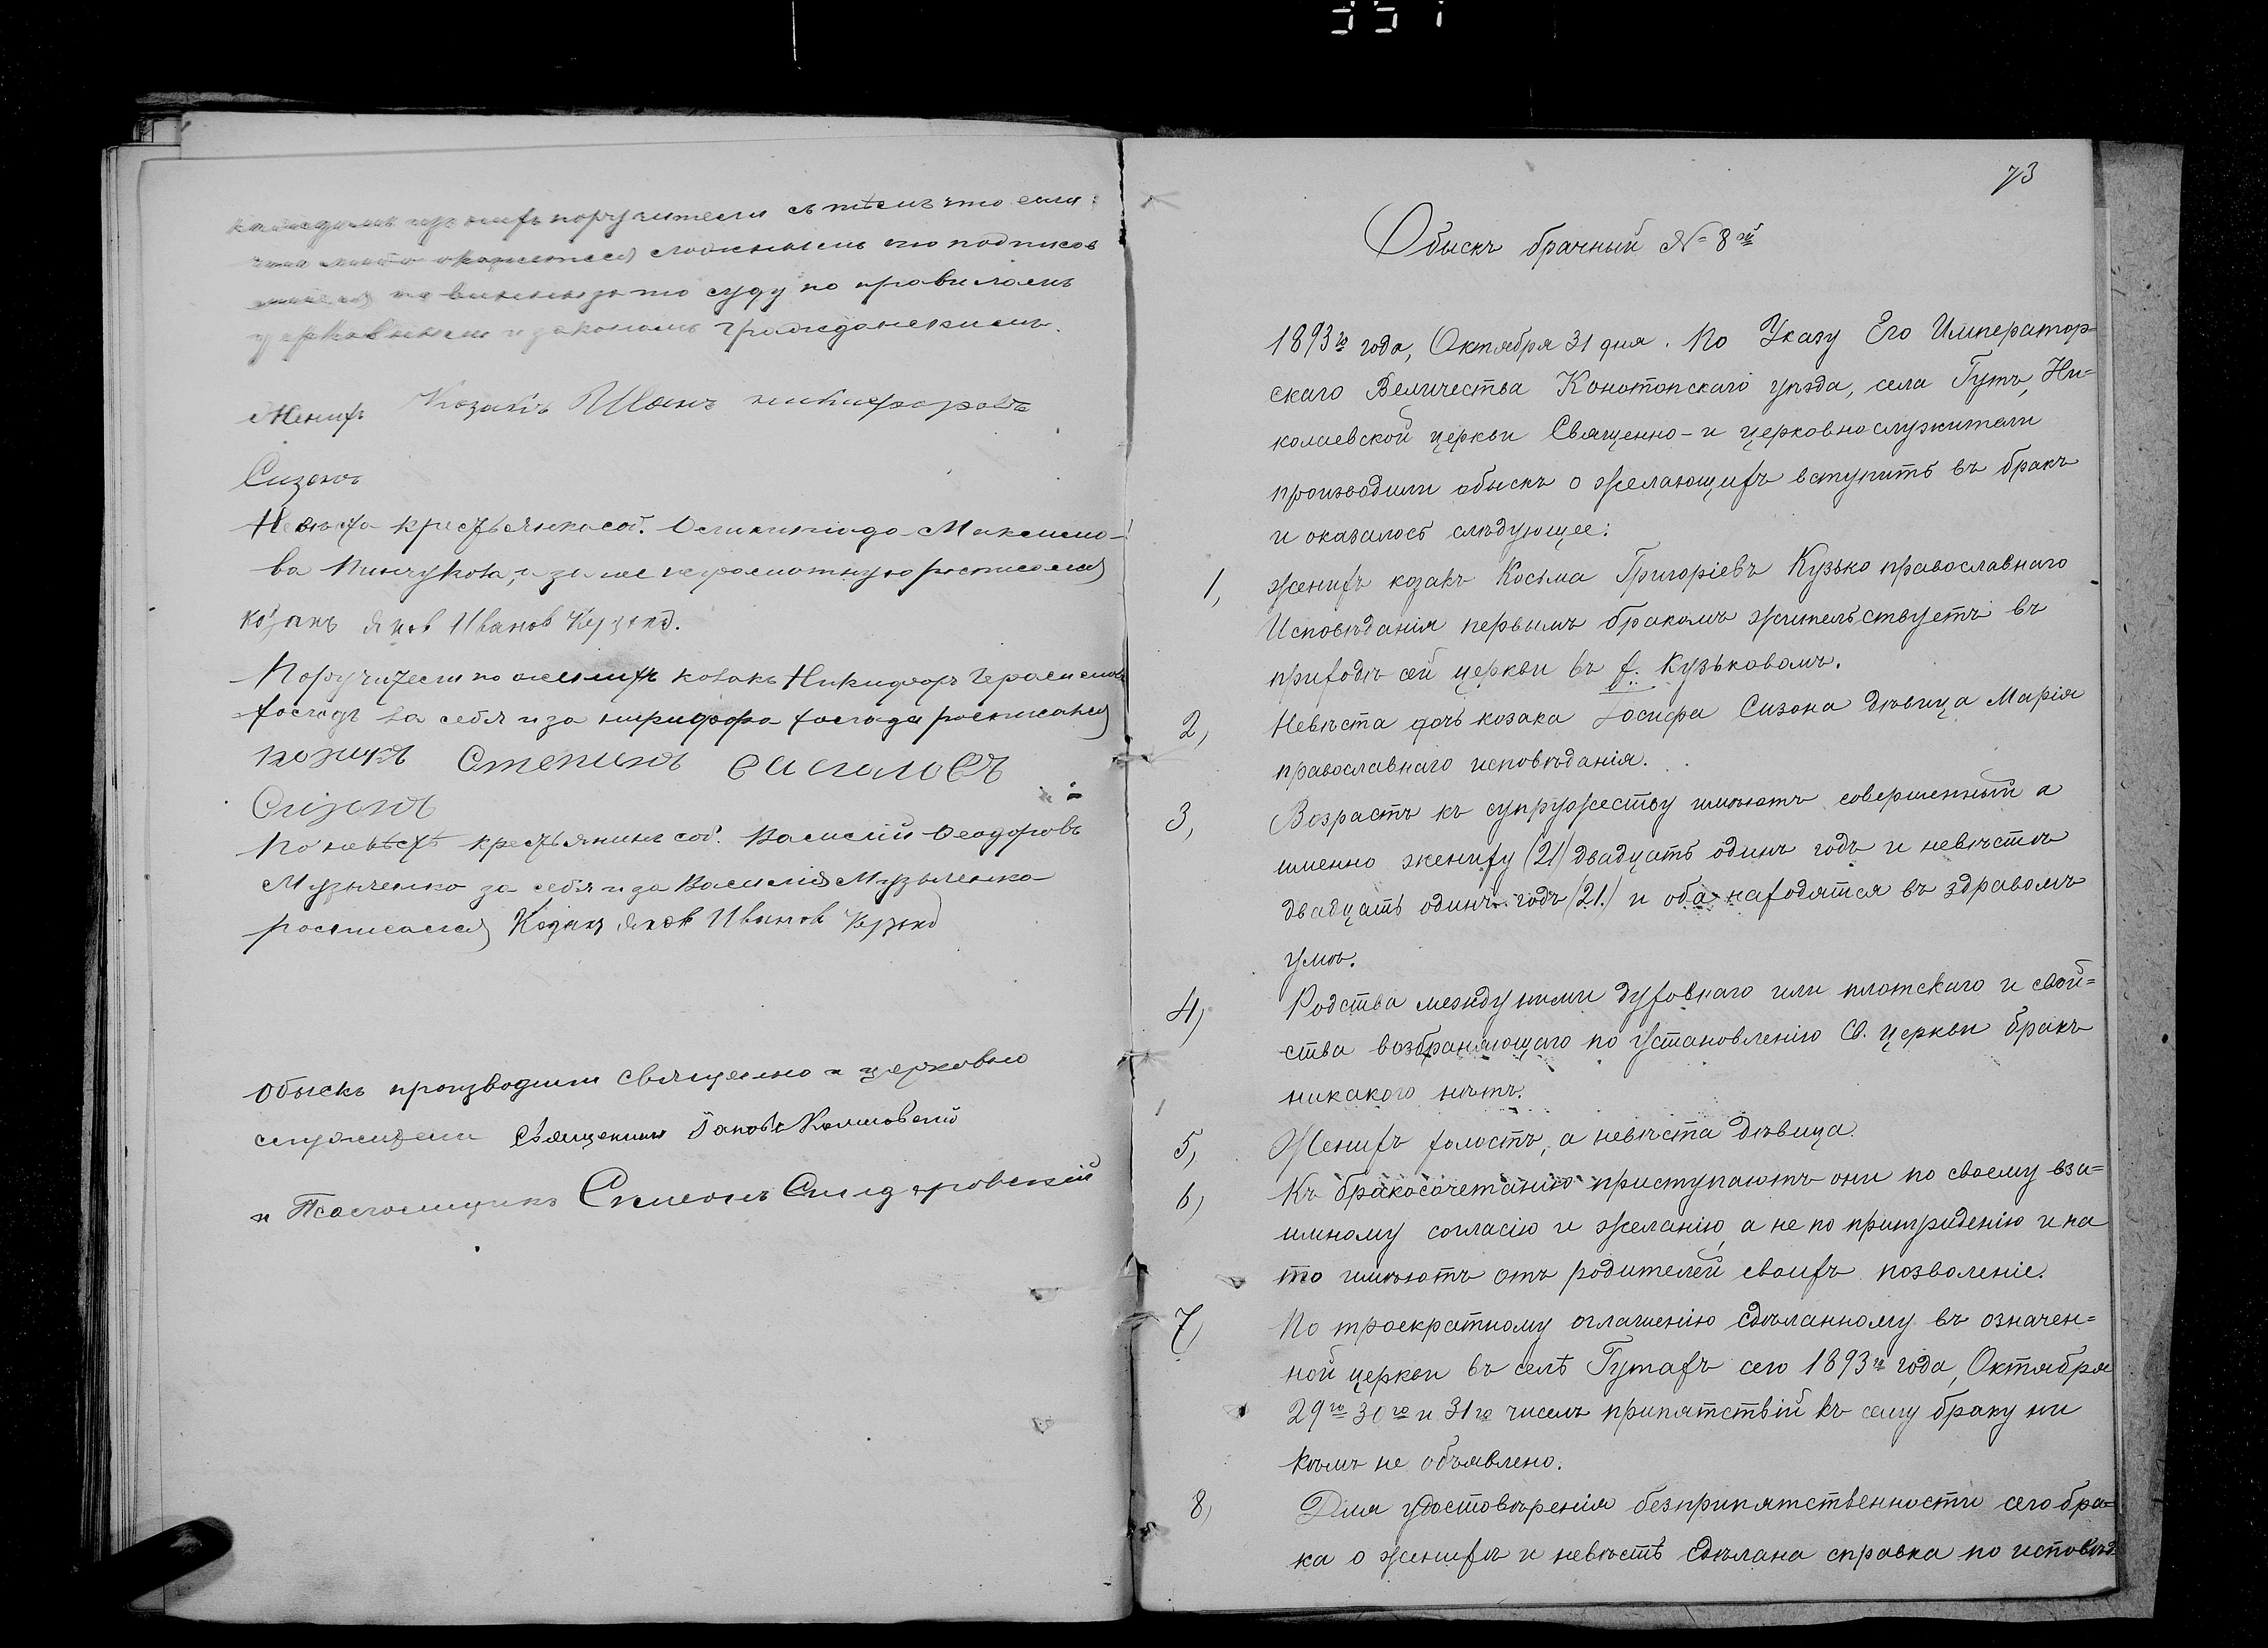 каждомъ изъ нихъ поручители съ тѣмъ что если
что либо окажется ложнымъ то подписав
шіеся повинны за то суду по правиламъ
церковнымъ и законамъ гражданскимъ.
Женихъ Козакъ Иванъ никифоровъ
Сизонъ
Невѣста крестьянка соб. Олимпіада Максимо-
ва Пинчукова, а за нее неграмотную росписался
козакъ Яков Иванов Кузко.
Поручители по женихѣ козакъ Никифоръ Герасимовъ
за себя и за никифора росписался
козакъ Степанъ
Сизонъ
По невѣстѣ крестьянинъ соб. Василій Ѳеодоровъ
Музыченко за себя и за Василія Музыченка
росписался Козакъ Яков Иванов Кузко
Обыскъ производили священно и церковно
служители Священникъ Іаковъ
и Псаломщикъ Симеонъ
73
Обыскъ брачный № 8ой
1893го года, Октября 31 дня. По Указу Его Император=
скаго Величества Конотопскаго уѣзда, села Гутъ, Ни=
колаевской церкви Священно- и церковнослужители
производили обыскъ о желающихъ вступить въ бракъ
и оказалось слѣдующее:
1, Женихъ козакъ Косьма Григоріевъ Кузько православнаго
Исповѣданія первымъ бракомъ жительствуетъ въ
приходѣ сей церкви въ х. Кузьковомъ.
2, Невѣста дочь козака Іосифа Сизона дѣвица Марія
православнаго исповѣданія.
3, Возрастъ къ супружеству имѣютъ совершенный а
именно жениху (21) двадцать одинъ годъ и невѣстѣ
двадцать одинъ годъ (21.) и оба находятся въ здравомъ
умѣ.
4, Родства между ними духовнаго или плотскаго и свой=
ства возбраняющаго по установленію Св. церкви бракъ
никакого нѣтъ.
5, Женихъ холостъ, а невѣста дѣвица.
6, Къ бракосочетанію приступаютъ они по своему вза=
имному согласію и желанію, а не по принужденію и на
то имѣютъ отъ родителей своихъ позволеніе.
7, По троекратному оглашенію сдѣланному въ означен=
ной церкви въ селѣ Гутахъ сего 1893го года, Октября
29го 30го и 31го чиселъ припятствій къ сему браку ни
кѣмъ не объявлено.
8, Для удостовѣренія безприпятственности сего бра=
ка о женихѣ и невѣстѣ сдѣлана справка по исповѣд